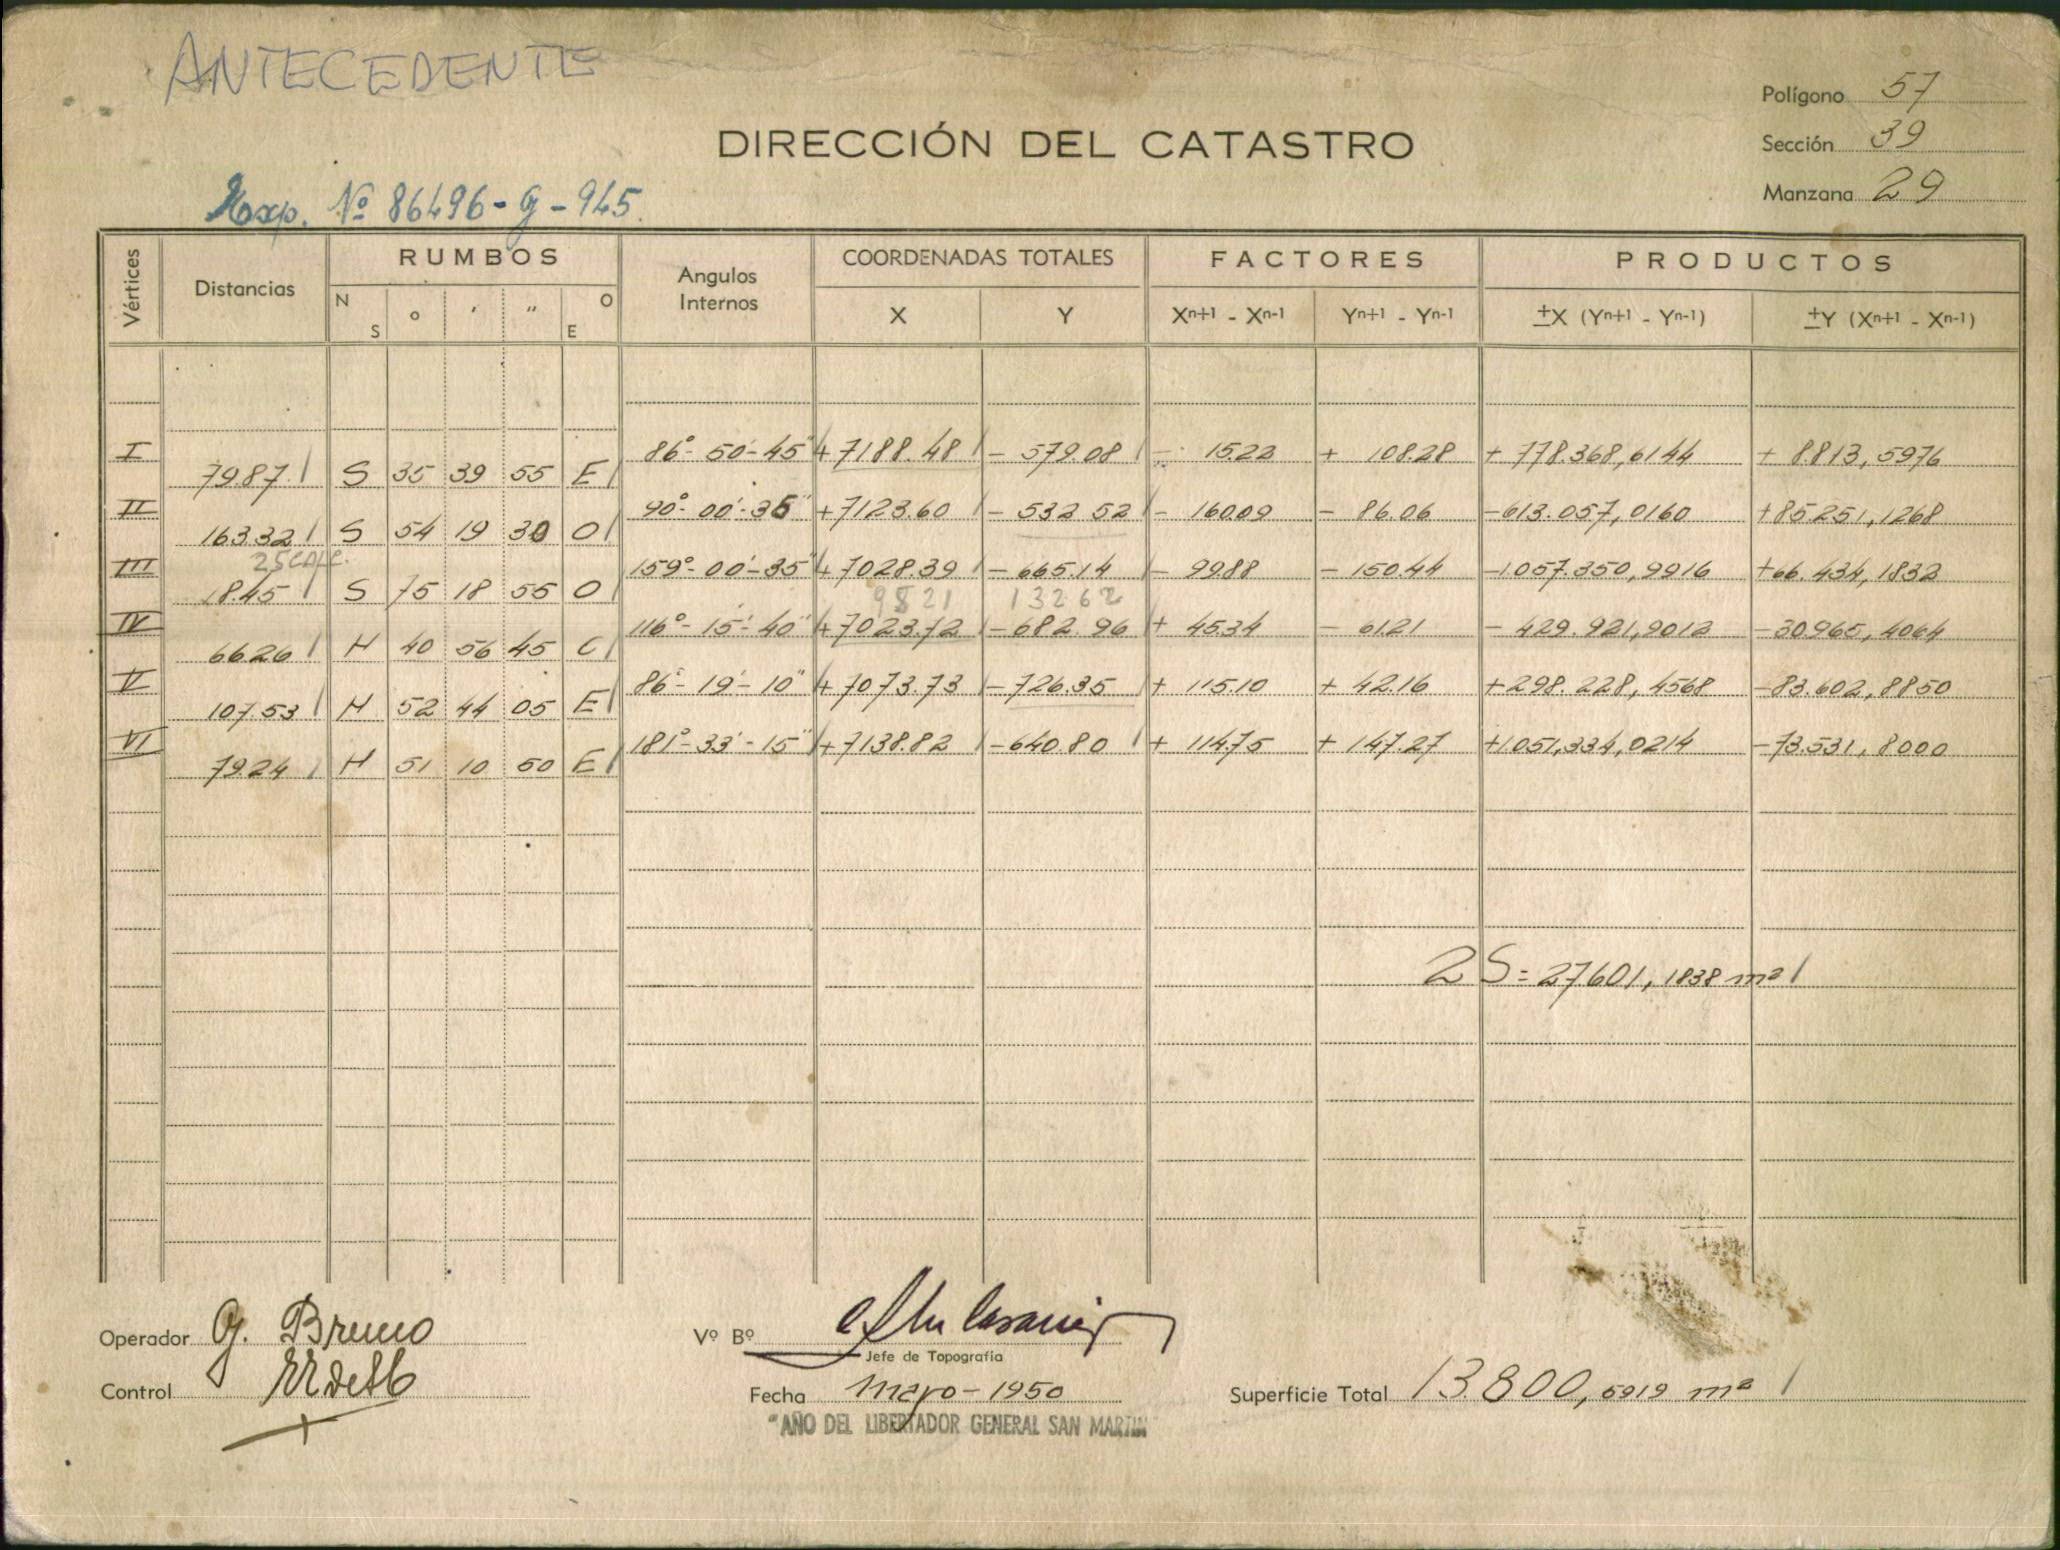 ANTECEDENTE
Polígono 57
DIRECCIÓN DEL CATASTRO
Sección 39
Manzana 29
Exp. Nº 86496-G-945
Vértices Distancias RUMBOS Angulos Internos COORDENADAS TOTALES FACTORES PRODUCTOS
N S ° ' " O E X Y Xn+1 - Xn-1 Yn+1 - Yn-1 ±X (Yn+1 - Yn-1) ±Y (Xn+1 - Xn-1)
I 86°-50'-45" +7188.48 - 579.08 - 15.22 + 108.28 + 778.368,6144 + 8.813,5976
79.87 S 35 39 55 E
II 90°-00'-35" +7123.60 - 532.52 - 160.09 - 86.06 -613.057,0160 +85.251,1268
163.32 S 54 19 30 O
25
III 159°-00'-35" +7028.39 -665.14 - 99.88 - 150.44 -1057.350,9916 +66.434,1832
18.45 S 75 18 55 O
9521 13262
IV 116°-15'-40" +7023.72 -682.96 + 45.34 - 61.21 - 429.921,9012 -30.965,4064
66.26 N 40 56 45 O
V 86°-19'-10" +7073.73 -726.35 + 115.10 + 42.16 +298.228,4568 -83.602,8850
107.53 N 52 44 05 E
VI 181°-33'-15" +7138.82 -640.80 + 114.75 + 147.27 +1.051,334,0214 -73.531,8000
79.24 N 51 10 50 E
2S=27601,1838 m²
Operador G. Bruno
Vº Bº
Jefe de Topografía
Control
Fecha mayo-1950
Superficie Total 13.800,5919 m²
"AÑO DEL LIBERTADOR GENERAL SAN MARTIN